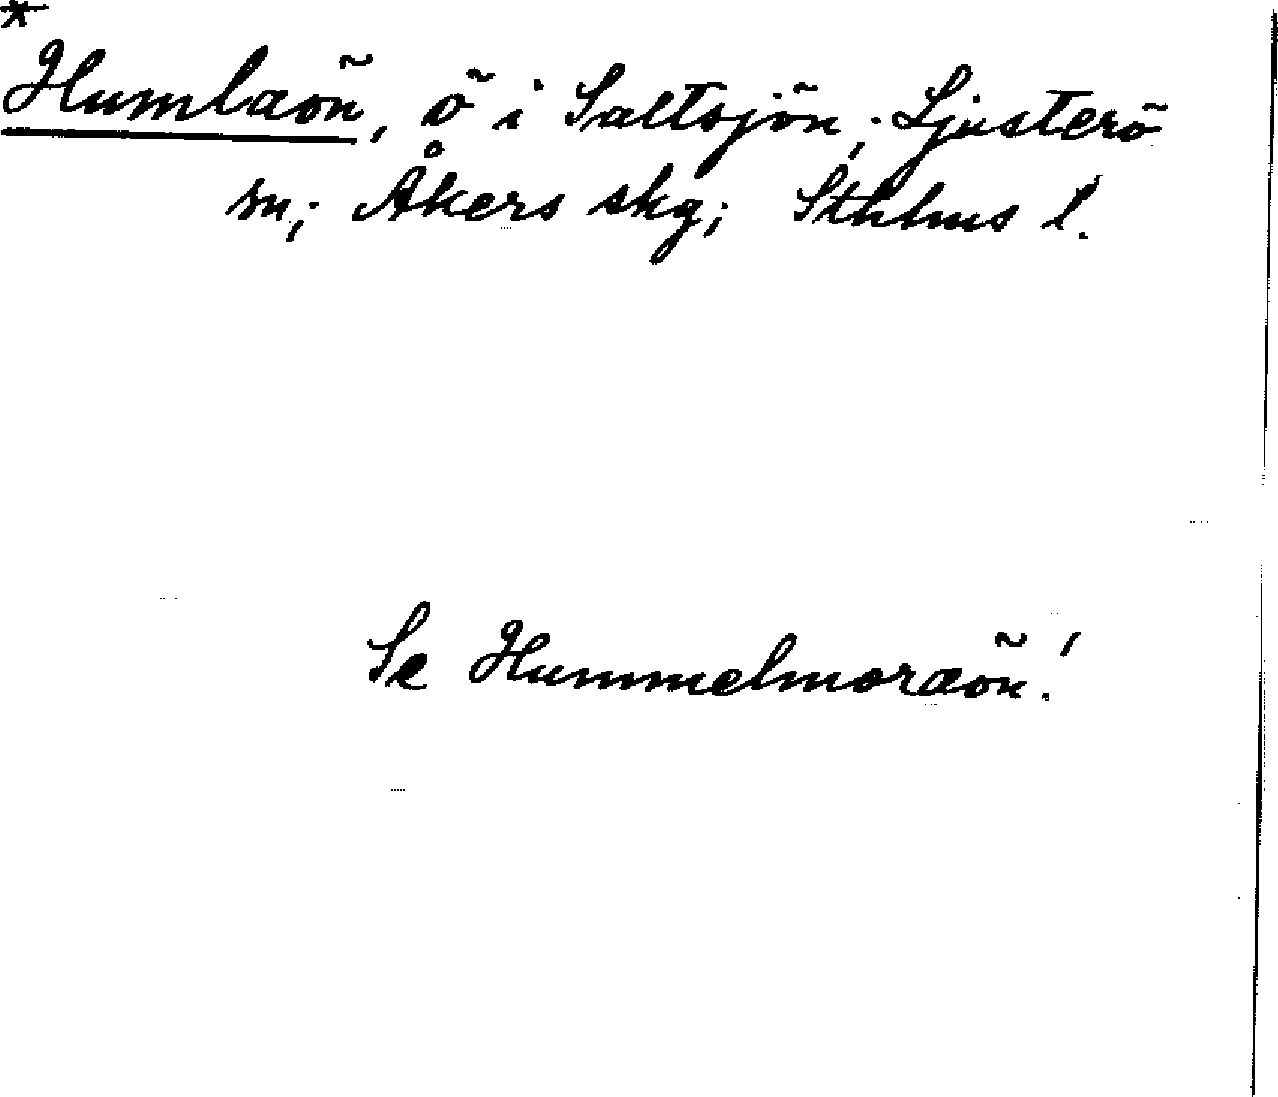 *
Humlaön, ö i Saltsjön; Ljusterö
sn; Åkers skg; Sthlms l.
Se Hummelmoraön!